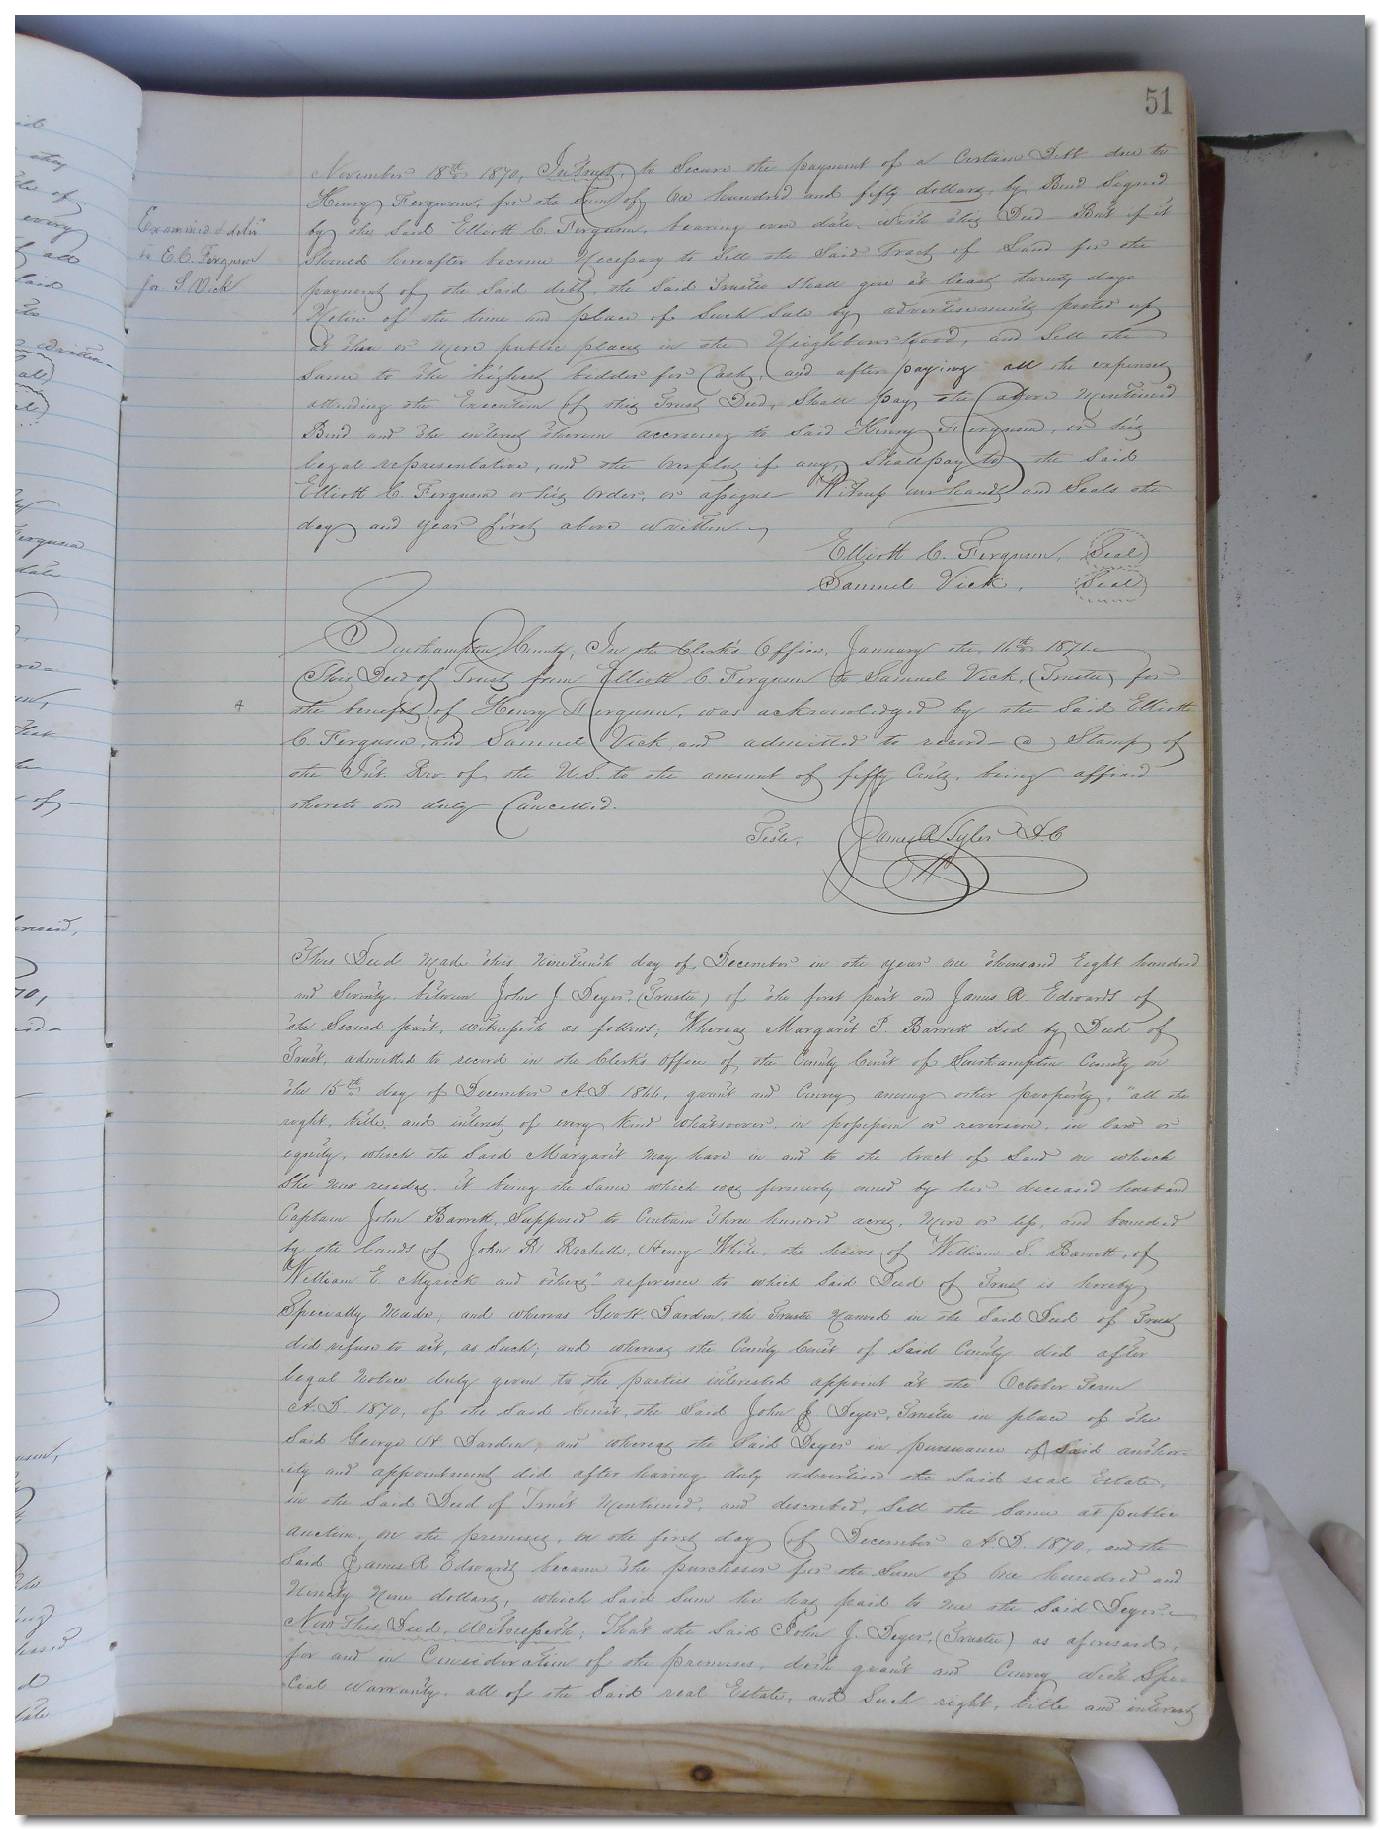 51
November 18th 1870, In trust, to Secure the payment of a Certain Debt due to
Henry Ferguson, for the Sum of One hundred and fifty dollars, by Bond Signed
by the Said Elliott C. Ferguson, bearing even date with this Deed - But if it
Should hereafter become Necessary to Sell the Said Tract of Land for the
payment of the Said debt, the Said Trustee Shall give at least twenty days
Notice of the time and place of Such Sale by advertisements posted up
at three or more public places in the Neighbourhood, and Sell the
Same to the highest bidder for Cash, and after paying all the expenses
attending the Execution of this Trust Deed, Shall pay the above Mentioned
Bond and the interest thereon accruing to Said Henry Ferguson, or his
legal representative, and the Overplus if any, Shall pay to the Said
Elliott C. Ferguson or his Order, or assigns - Witness our hands and Seals the
day and year first above written
Examined & deliv
to E. C. Ferguson
for S Vick
Elliott C. Ferguson, (Seal)
Samuel Vick, (Seal)
Southampton County, In the Clerk's Office, January the 16th 1871
This Deed of Trust from Elliott C Ferguson to Samuel Vick, (Trustee) for
the benefit of Henry Ferguson, was acknowledged by the Said Elliott
C. Ferguson, and Samuel Vick and admitted to record - a Stamp of
the Int. Rev. of the U.S. to the amount of fifty Cents, being affixed
thereto and duly Cancelled.
Teste, James R Tyler D.C
This Deed Made this Nineteenth day of December in the year One thousand Eight hundred
and Seventy between John J. Deyer, (Trustee) of the first part and James R. Edwards of
the Second part, witnesseth as follows; Whereas Margaret P. Barrett did by Deed of
Trust, admitted to record in the Clerk's Office of the County Court of Southampton County on
the 15th day of December A.D. 1866, grant and Convey among other property, "all the
right, title, and interest of every Kind whatsoever, in possession or reversion, in law or
equity, which the Said Margaret may have in and to the tract of Land on which
She now resides, it being the Same which was formerly owned by her deceased husband
Captain John Barrett, Supposed to Contain three hundred acres, More or less, and bounded
by the lands of John R. Rochelle, Henry White, the heirs of William S. Barrett, of
William E. Myrick and others" reference to which Said Deed of Trust is hereby
Specially Made, and whereas Geo H. Darden, the Trustee Named in the Said Deed of Trust
did refuse to act, as Such; and whereas the County Court of Said County did after
legal Notice duly given to the parties interested appoint at the October Term
A.D. 1870, of the Said Court, the Said John J. Deyer, Trustee in place of the
Said George H Darden, and whereas the Said Deyer in pursuance of Said author-
ity and appointment did after having duly advertised the Said real Estate,
in the Said Deed of Trust Mentioned, and described, Sell the Same at public
Auction, on the premises, on the first day of December A.D. 1870, and the
Said James R Edwards became the purchaser for the Sum of One hundred and
Ninety Nine dollars, which Said Sum he has paid to me the Said Deyer.
Now This Deed, Witnesseth; That the Said John J. Deyer, (Trustee) as aforesaid,
for and in Consideration of the premises, doth grant and Convey with Spe-
cial Warranty, all of the Said real Estate, and Such right, title and interest